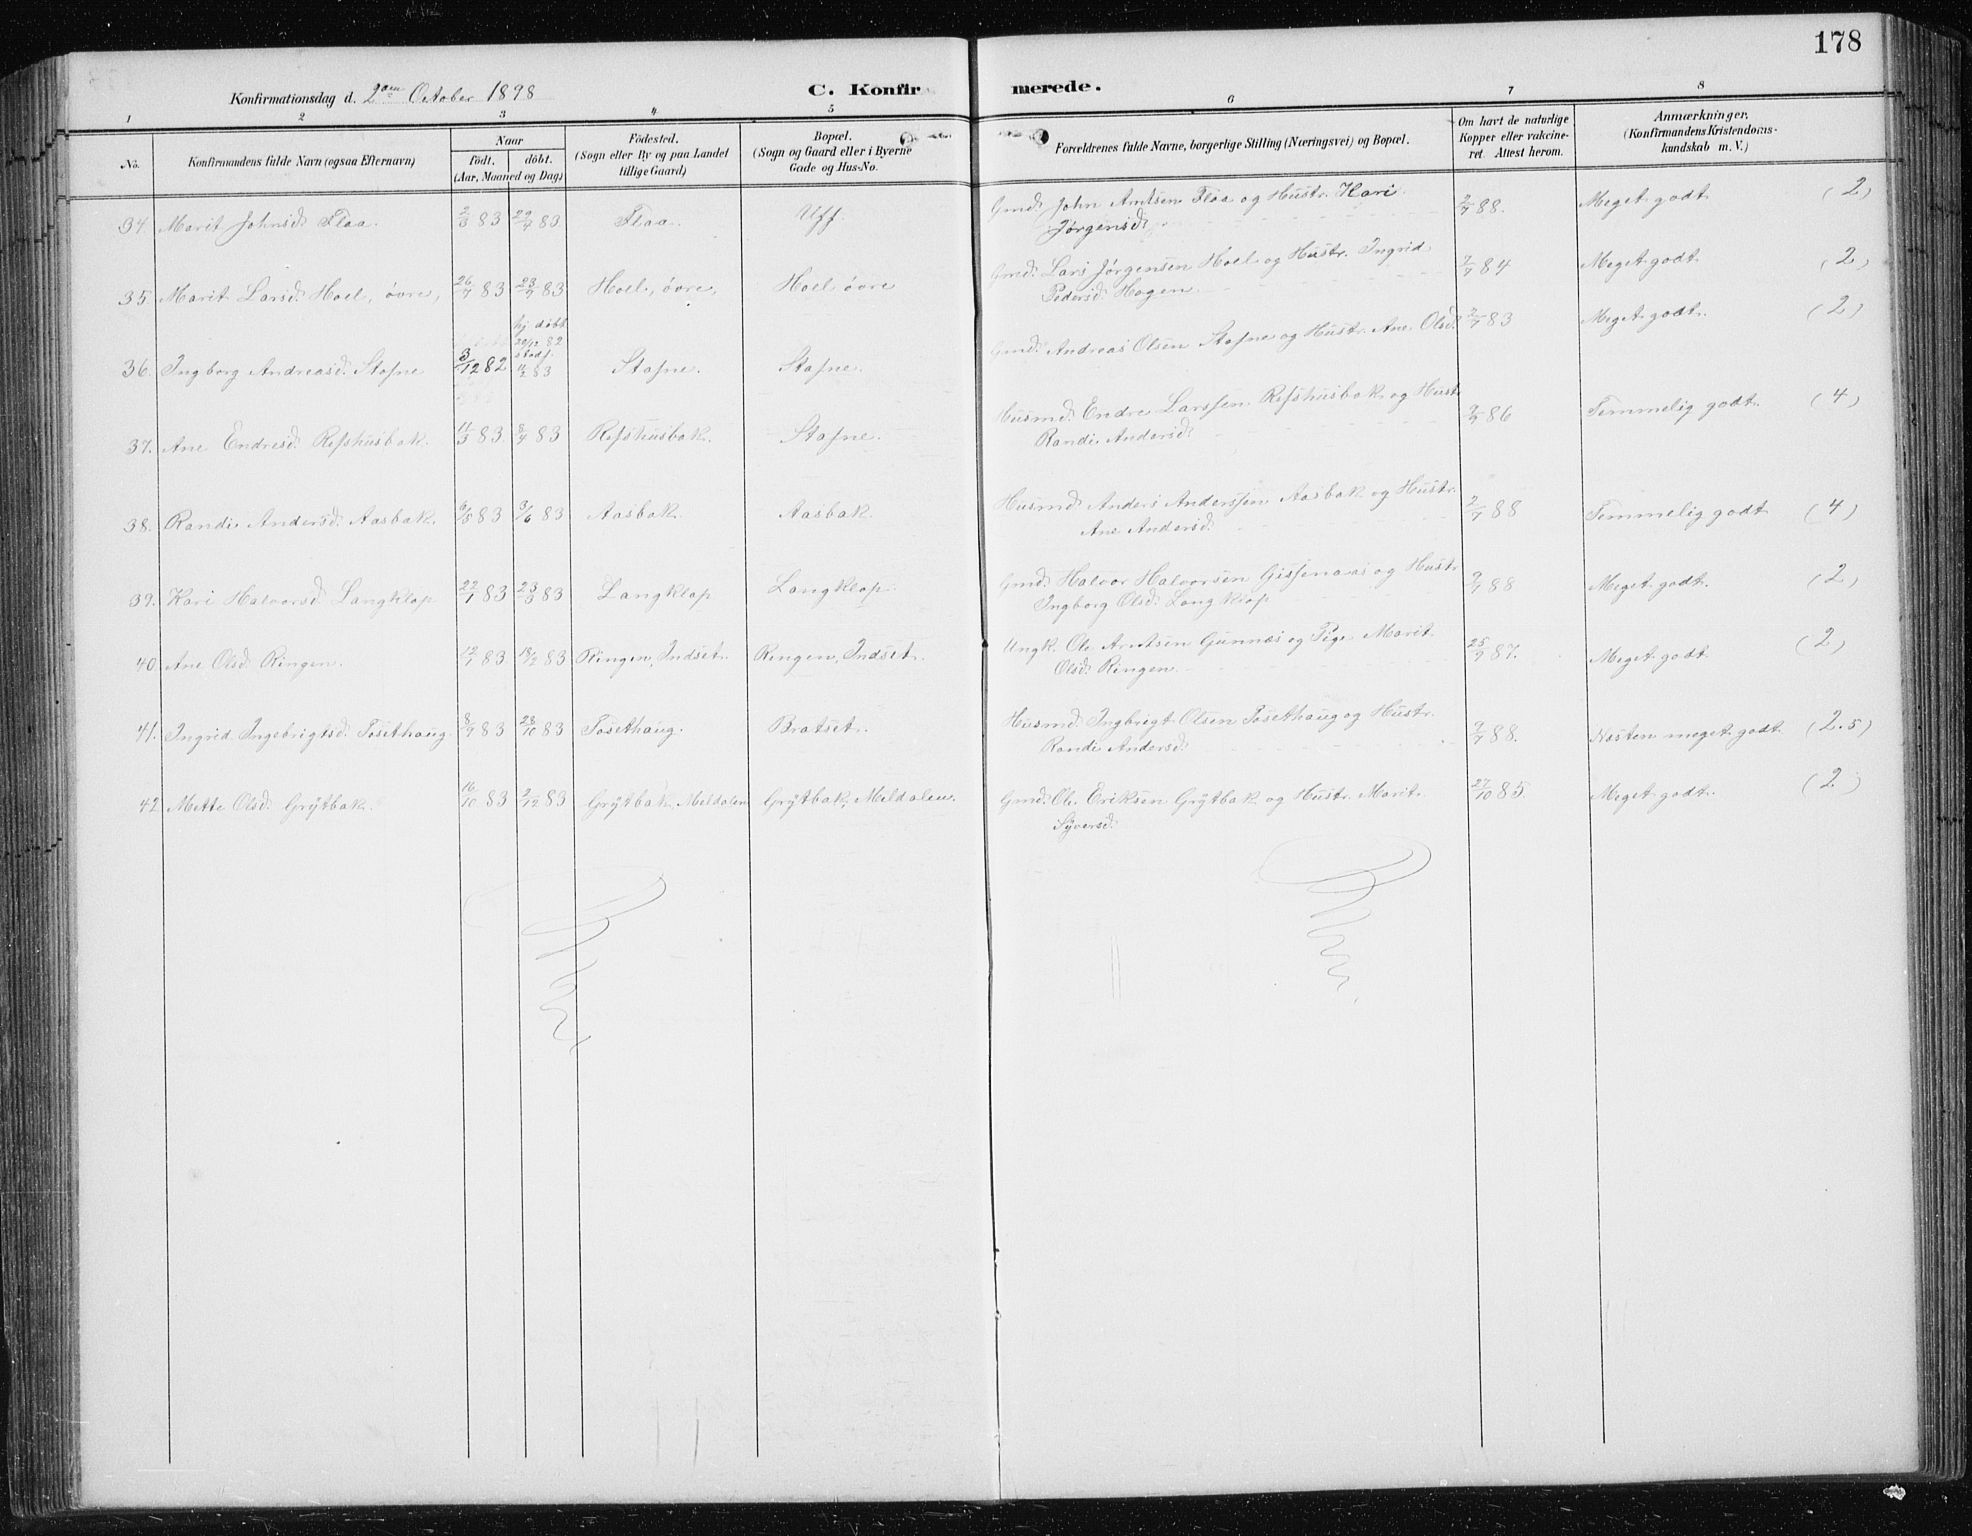 178
Konfirmationsdag d. 2den October 1898
C. Konfirmerede.
1 2 3 4 5 6 7 8
No.
Konfirmandens fulde Navn (ogsaa Efternavn)
Naar
födt. döbt.
(Aar, Maaned og Dag)
Födested.
(Sogn eller By og paa Landet
tillige Gaard)
Bopæl.
(Sogn og Gaard eller i Byerne
Gade og Hus-No.
Forældrenes fulde Navne, borgerlige Stilling (Næringsvei) og Bopæl.
Om havt de naturlige
Kopper eller vakcine-
ret. Attest herom.
Anmærkninger.
(Konfirmandens Kristendoms-
kundskab m. V.)
34. Marit Johnsd. Flaa. 2/3 83 29/4 83 Flaa. Uff. Gmd. John Arntsen Flaa og Hustr. Kari 2/7 88. Meget godt (2)
Jørgensd.
35. Marit Larsd. Hoel, övre, 26/7 83 23/9 83 Hoel, övre, Hoel övre Gmd. Lars Jörgensen Hoel og Hustr. Ingrid 7/7 84 Meget godt (2)
Pedersd. Hagen
hj. döbt
20/12 82
stadf.
36. Ingborg Andreasd. Stafne 3/12 82 11/2 83 Stafne. Stafne. Gmd. Andreas Olsen Stafne og Hustr. Ane Olsd. 2/7 83 Meget godt. (2)
37. Ane Endresd. Refshusbak. 11/3 83. 8/4 83 Refshusbak. Stafne. Husmd. Endre Larssen Refshusbak og Hustr. 9/9 86 Temmelig godt. (4)
Randi Andersd.
38. Randi Andersd. Aasbak. 9/5 83 3/6 83 Aasbak. Aasbak. Husmd. Anders Anderssen Aasbak og Hustr. 2/7 88 Temmelig godt (4)
Ane Andersd.
39. Kari Halvorsd. Langklop 22/1 83 23/3 83 Langklop Langklop. Gmd. Halvor Halvorsen Gissenaas og Hustr. 2/7 88 Meget godt. (2)
Ingborg Olsd. Langklop
40. Ane Olsd. Ringen. 12/1 83. 18/2 83 Ringen, Indset. Ringen, Indset. Ungk. Ole Arntsen Gunnæs og Pige Marit 25/9 87. Meget godt (2)
Olsd. Ringen
41. Ingrid Ingebrigtsd. Tösethaug. 8/9 83 28/10 83 Tösethaug. Bratset. Husmd. Ingbrigt Olsen Tösethaug og Hustr. 2/7 88. Næsten meget godt (2.5)
Randi Andersd.
42 Mette Olsd. Grÿtbak. 16/10 83 2/12 83 Grÿtbak, Meldalen Grÿtbak, Meldalen. Gmd. Ole Eriksen Grÿtbak og Hustr. Marit 27/10 85. Meget godt. (2)
Sÿversd.